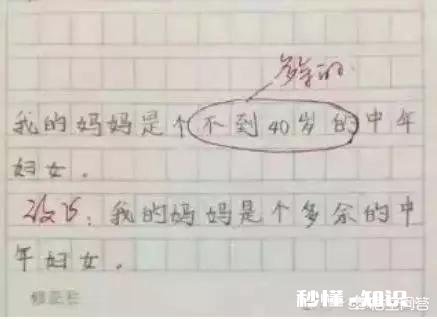 多余的
我的妈妈是个不到40岁的中年
妇女。
改为：我的妈妈是个多余的中
年妇女。
秒懂·知识